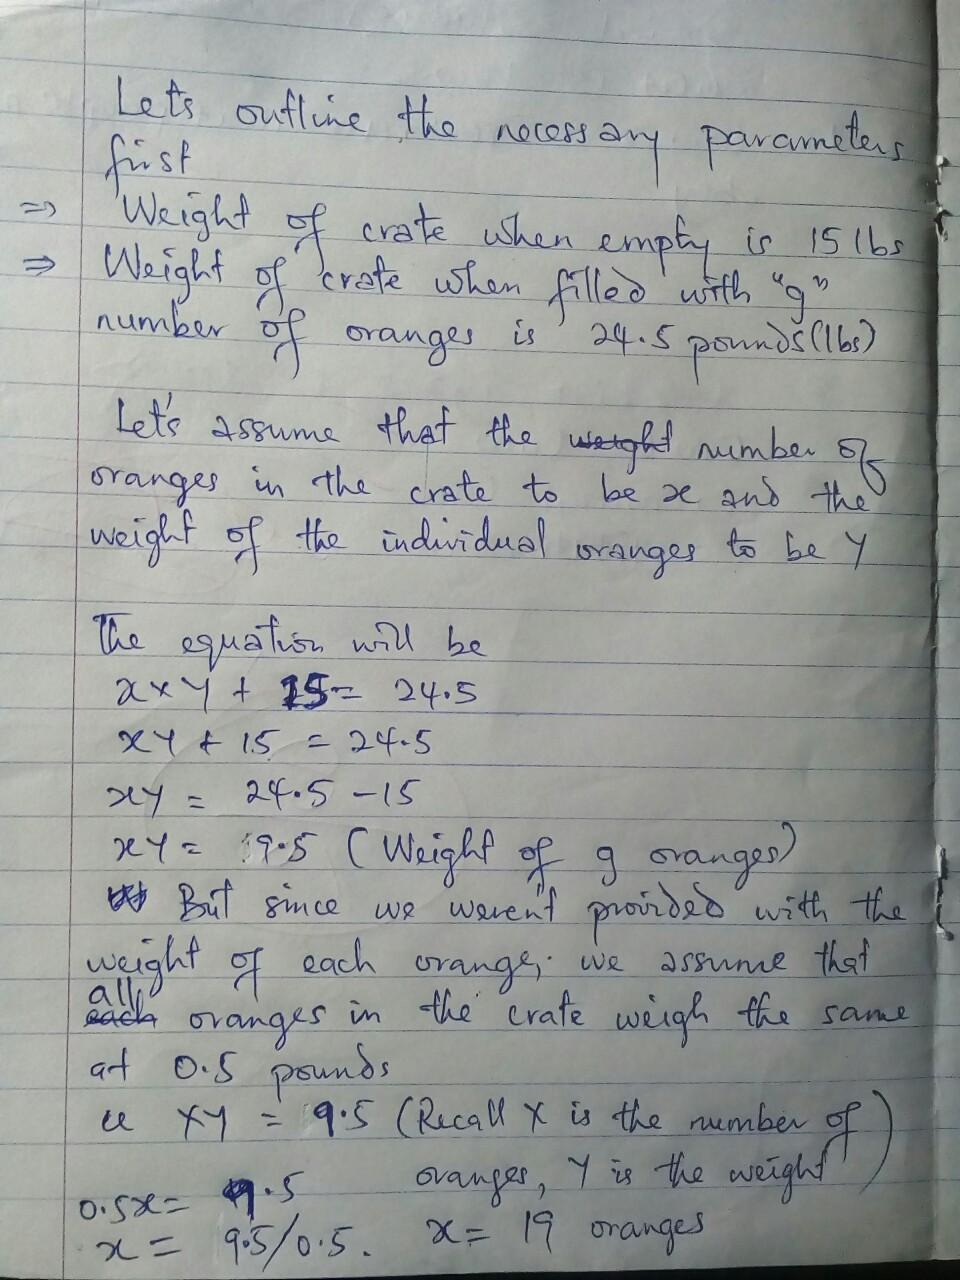 Lets outline the necessary parameters
first
=> Weight of crate when empty is 15 lbs
=> Weight of crate when filled with "g"
number of oranges is 24.5 pounds (lbs)
Let's assume that the weight number of
oranges in the crate to be x and the
weight of the individual oranges to be y
The equation will be
x × y + 15 = 24.5
xy + 15 = 24.5
xy = 24.5 - 15
xy = 9.5 (Weight of g oranges)
But since we weren't provided with the
weight of each orange, we assume that
all
each oranges in the crate weigh the same
at 0.5 pounds
xy = 9.5 (Recall x is the number of
oranges, y is the weight)
0.5x = 9.5
x = 9.5/0.5. x = 19 oranges